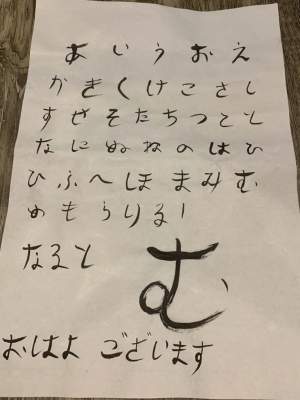 あいうおえ
かきくけこさし
すせそたちつてと
なにぬねのはひ
ひふへほまみむ
めもらりるー
なると
む
おはよございます